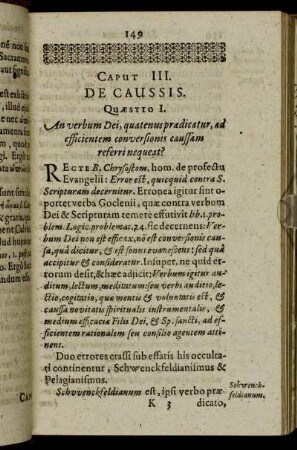 149
CAPUT III.
DE CAUSSIS.
QUÆSTIO I.
An verbum Dei, quatenus prædicatur, ad
efficientem conversionis caussam
referri nequeat?
RECTE B. Chrysostom. hom. de profectu
Evangelii: Error est, quicquid contra S.
Scripturam decernitur. Erronea igitur sint o-
portet verba Goclenii, quæ contra verbum
Dei & Scripturam temerè effutivit lib. 1. pro-
blem. Logic. problemat. 24. sic decernens: Ver-
bum Dei non est efficax, nō est conversionis caus-
sa, quà dicitur, & est sonus evanescens; sed quà
accipitur & consideratur. Insuper, ne quid er-
rorum desit, & hæc adjicit: Verbum igitur au-
ditum, lectum, meditatum: seu verbi auditio, le-
ctio, cogitatio, quæ mentis & voluntatis est, &
caussa novitatis spiritualis instrumentalis, &
medium efficaciæ Filii Dei, & Sp. sancti, ad ef-
ficientem rationalem seu consilio agentem atti-
nent.
Duo errores crassi sub effatis his occulta-
ti continentur, Schwenckfeldianismus &
Pelagianismus.
Schvvenckfeldianum est, ipsi verbo præ-
Schwenck-
feldianum.
K 3
dicato,